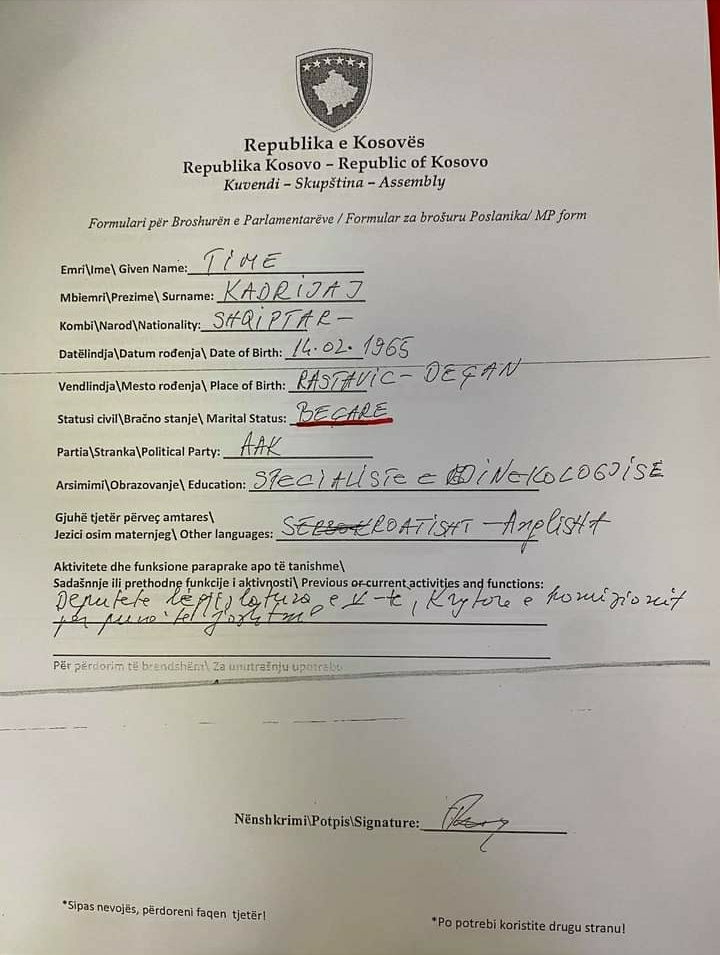 Republika e Kosovës
Republika Kosovo – Republic of Kosovo
Kuvendi – Skupština – Assembly
Formulari për Broshurën e Parlamentarëve / Formular za brošuru Poslanika/ MP form
Emri\Ime\ Given Name: TIME
Mbiemri\Prezime\ Surname: KADRIJAJ
Kombi\Narod\Nationality: SHQIPTAR –
Datëlindja\Datum rođenja\ Date of Birth: 14.02. 1965
Vendlindja\Mesto rođenja\ Place of Birth: RASTAVIC – DEÇAN
Statusi civil\Bračno stanje\ Marital Status: BEÇARE
Partia\Stranka\Political Party: AAK
Arsimimi\Obrazovanje\ Education: SPECIALISTE E GJINEKOLOGJISË
Gjuhë tjetër përveç amtares\
Jezici osim maternjeg\ Other languages: KROATISHT – Anglisht
Aktivitete dhe funksione paraprake apo të tanishme\
Sadašnnje ili prethodne funkcije i aktivnosti\ Previous or current activities and functions:
Deputete legjislatura e V-të, Krytare e komisionit
për pune të jashtme
Për përdorim të brendshëm\ Za unutrašnju upotrebu
Nënshkrimi\Potpis\Signature:
*Sipas nevojës, përdoreni faqen tjetër!
*Po potrebi koristite drugu stranu!